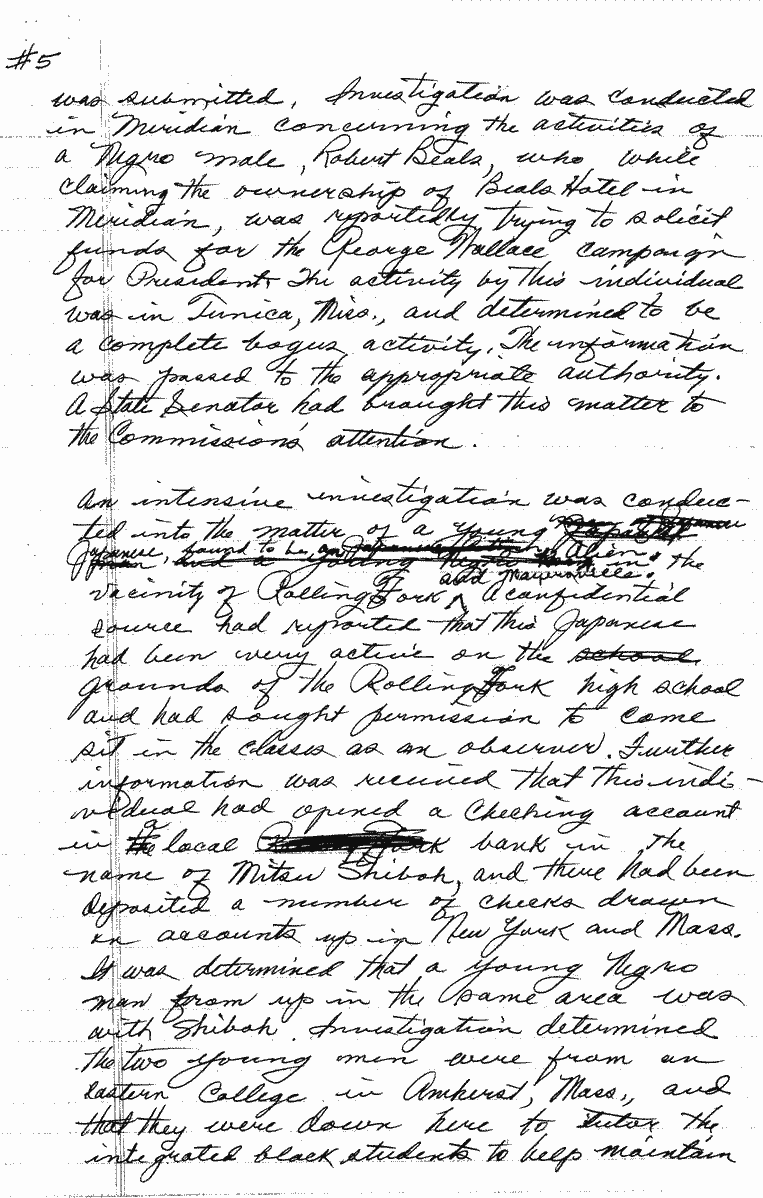 #5
was submitted. Investigation was conducted
in Meridian concerning the activities of
a Negro male, Robert Beals, who, while
claiming the ownership of Beals Hotel in
Meridian, was reportedly trying to solicit
funds for the George Wallace campaign
for President. The activity by this individual
was in Tunica, Miss., and determined to be
a complete bogus activity. The information
was passed to the appropriate authority.
A State Senator had brought this matter to
the Commission's attention.
An intensive investigation was conduc-
ted into the matter of a young
Japanese, found to be an Alien, in the
vicinity of Rolling Fork and Mayersville. A confidential
source had reported that this Japanese
had been very active on the school
grounds of the Rolling Fork high school
and had sought permission to come
sit in the classes as an observer. Further
information was received that this indi-
vidual had opened a checking account
in a local bank in the
name of Mitsu Shiboh, and there had been
deposited a number of checks drawn
on accounts up in New York and Mass.
It was determined that a young Negro
man from up in the same area was
with Shiboh. Investigation determined
the two young men were from an
Eastern College in Amherst, Mass., and
that they were down here to tutor the
integrated black students to help maintain